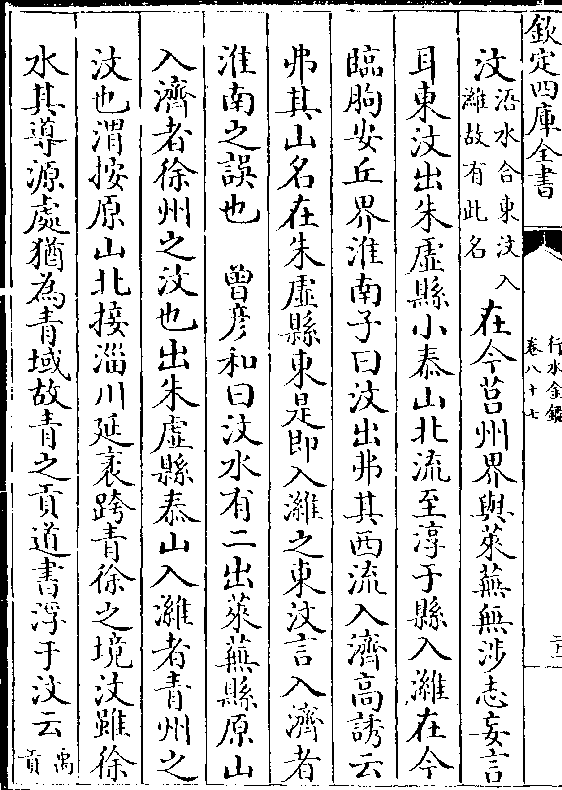 欽定四庫全書
行水金鑑
卷八十七
汶
浯水合東汶入
濰故有此名
在今莒州界與萊蕪無涉志妄言
耳東汶出朱虛縣小泰山北流至淳于縣入濰在今
臨朐安丘界淮南子曰汶出弗其西流入濟高誘云
弗其山名在朱虛縣東是即入濰之東汶言入濟者
淮南之誤也　曾彥和曰汶水有二出萊蕪縣原山
入濟者徐州之汶也出朱虛縣泰山入濰者青州之
汶也渭按原山北接淄川延袤跨青徐之境汶雖徐
水其導源處猶為青域故青之貢道書浮于汶云
禹
貢